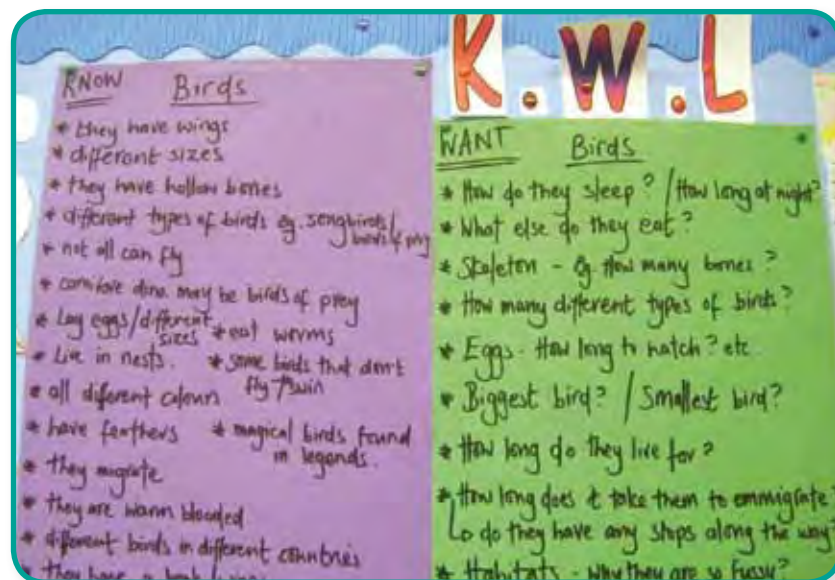 K.W.L
KNOW Birds
* they have wings
* different sizes
* they have hollow bones
* different types of birds eg. songbirds/
birds of prey
* not all can fly
* carnivore dino. may be birds of prey
* Lay eggs/different
sizes * eat worms
* Live in nests. * some birds that don't
fly swim
* all different colours
* have feathers * magical birds found
in legends.
* they migrate
* they are warm blooded
* different birds in different countries
* they have a beak
WANT Birds
* How do they sleep? / How long at night?
* What else do they eat?
* Skeleton - Eg. How many bones?
* How many different types of birds?
* Eggs - How long to hatch? etc
* Biggest bird? / Smallest bird?
* How long do they live for?
* How long does it take them to emmigrate?
do they have any stops along the way
* Habitats - why they are so fussy?